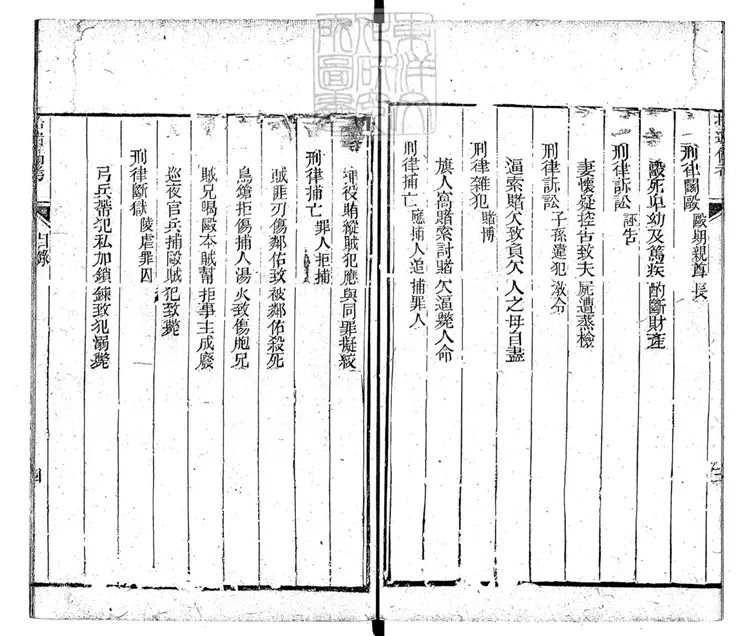 刑律鬭毆 毆期親尊長
毆死卑幼及篤疾酌斷財產
刑律訴訟 誣告
妻懷疑控告致夫屍遭蒸檢
刑律訴訟 子孫違犯教令
逼索賭欠致負欠人之母自盡
刑律雜犯 賭博
旗人窩賭索討賭欠逼斃人命
刑律捕亡 應捕人追捕罪人
捕役賄縱賊犯應與同罪擬絞
刑律捕亡 罪人拒捕
賊匪刃傷鄰佑致被鄰佑殺死
鳥鎗拒傷捕人湯火致傷胞兄
賊兄喝毆本賊幫拒事主成廢
巡夜官兵捕毆賊犯致斃
刑律斷獄 陵虐罪囚
弓兵帶犯私加鎖鍊致犯溺斃
目錄
四